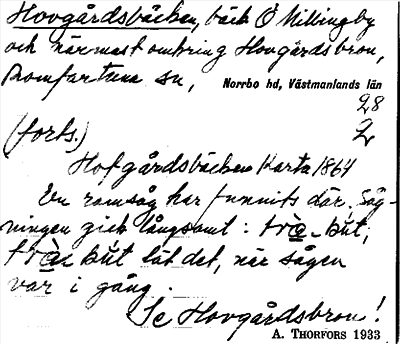 Hovgårdsbäcken, bäck Ö Millingby
och närmast omkring Hovgårdsbron,
Romfartuna sn, Norrbo hd, Västmanlands län
28
2
(forts.)
Hofgårdsbäcken Karta 1864
En ramsåg har funnits där. Såg-
ningen gick långsamt: trà-but,
trà-but lät det, när sågen
var i gång.
Se Hovgårdsbron!
A. THORFORS 1933